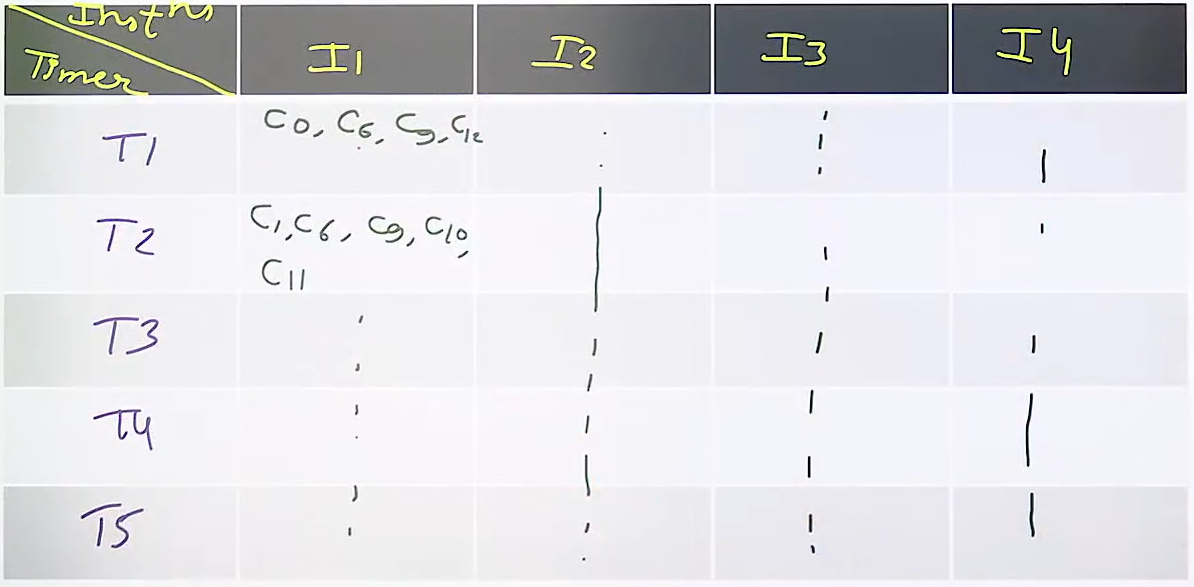 Insths
Timer
I1
I2
I3
I4
T1
C0, C6, C9, C12
T2
C1, C6, C9, C10,
C11
T3
T4
T5